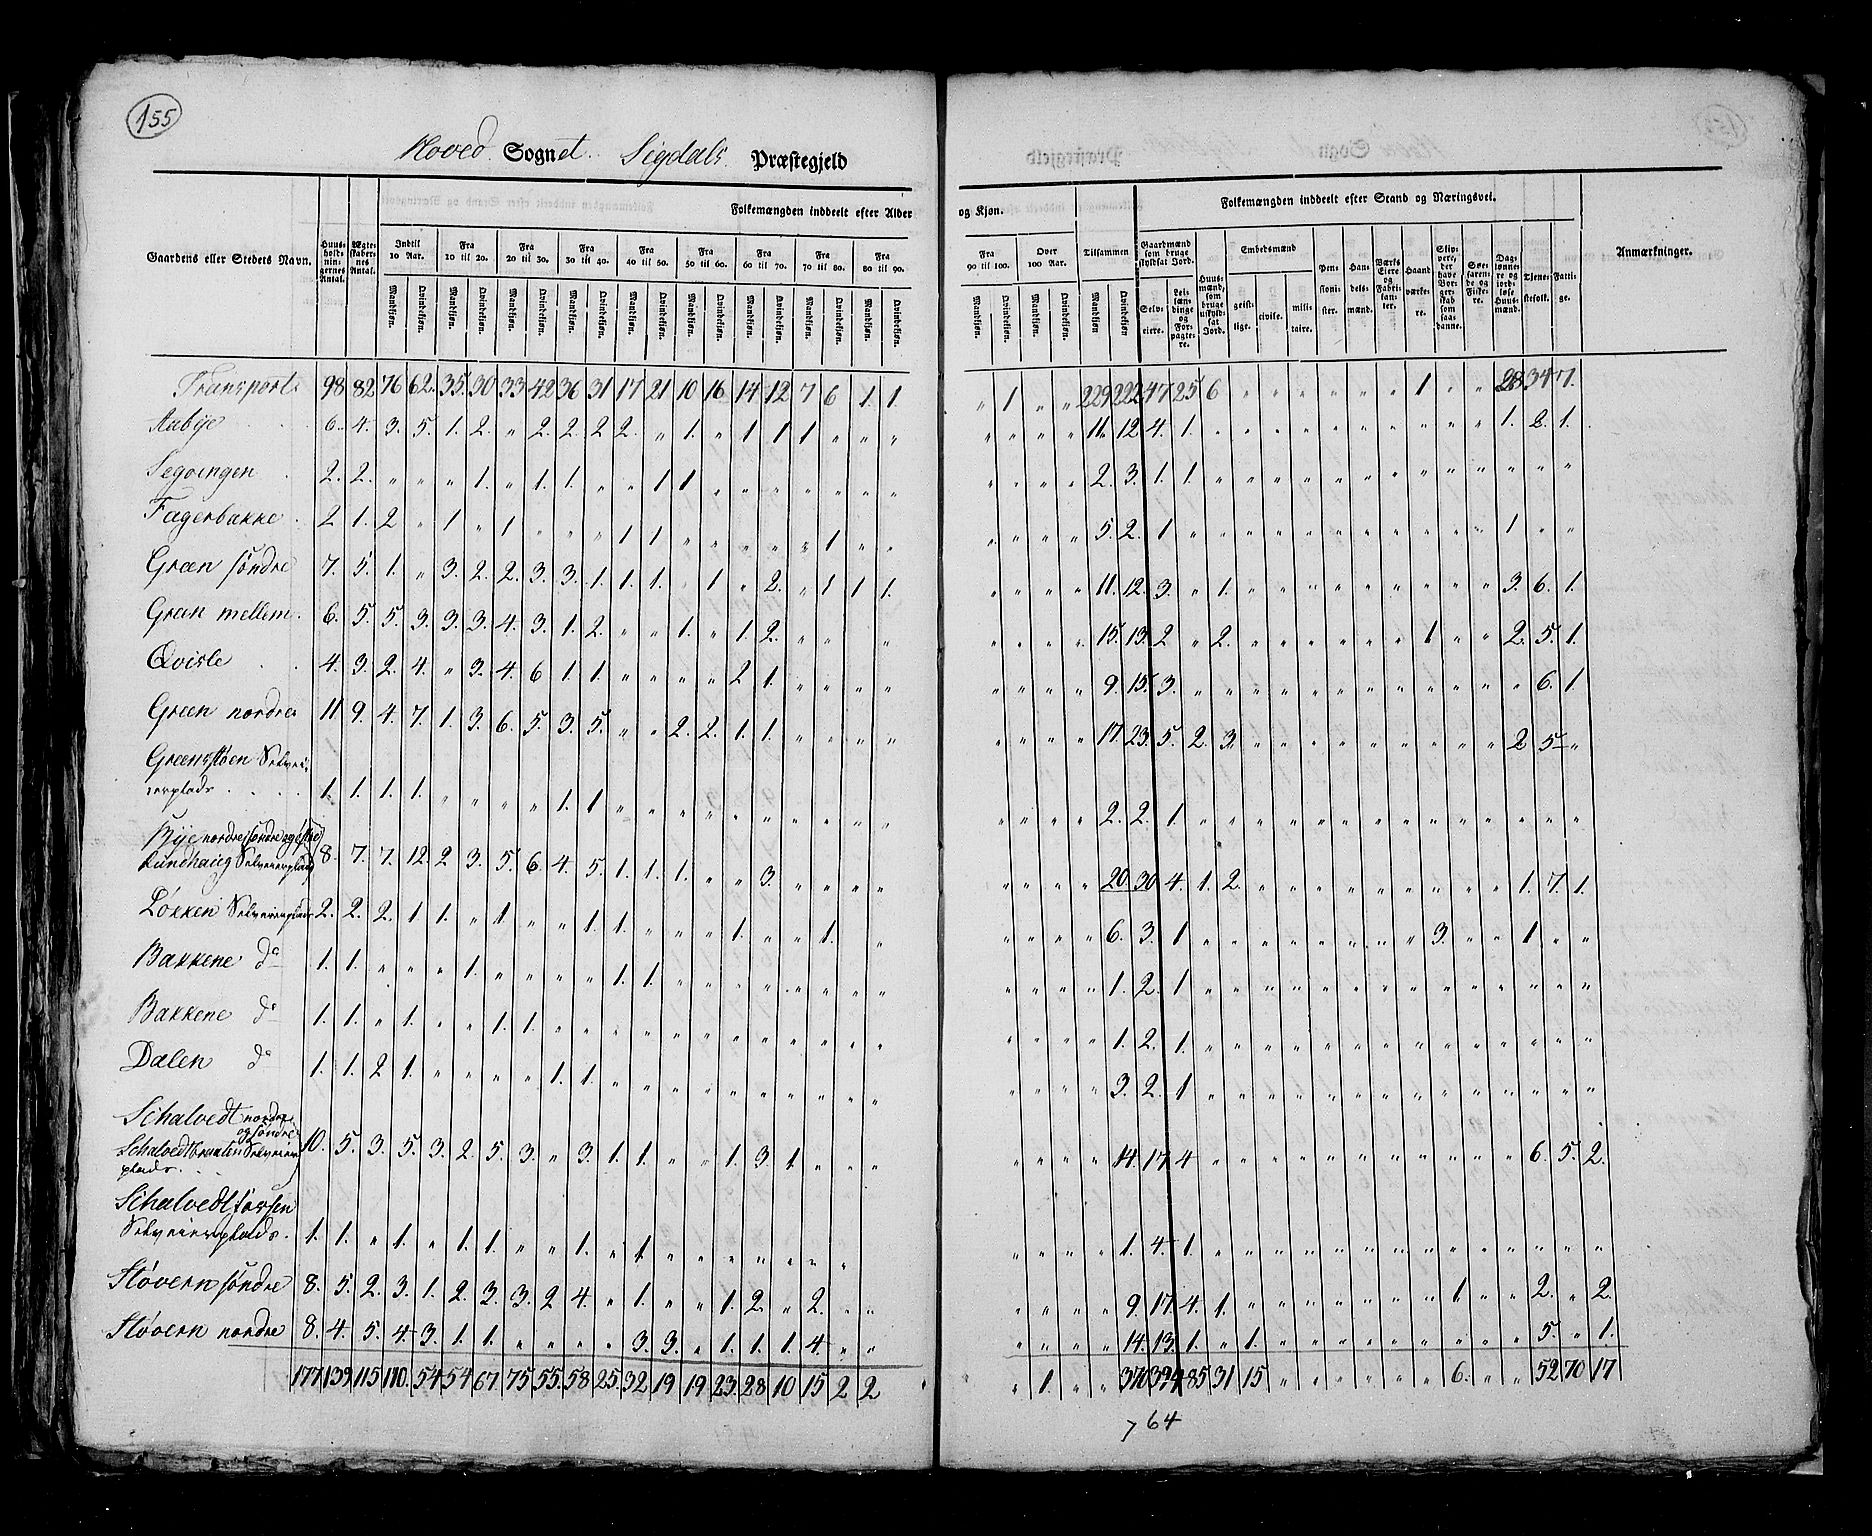 155
Hoved Sognet Sigdals Præstegjeld
Folkemængden inddeelt efter Alder og Kjøn. Folkemængden inddeelt efter Stand og Næringsvei.
Gaardens eller Stedets Navn. Huus-holdnin-gernes Antal. Ægte-skaber-nes Antal. Indtil 10 Aar. Fra 10 til 20. Fra 20 til 30. Fra 30 til 40. Fra 40 til 50. Fra 50 til 60. Fra 60 til 70. Fra 70 til 80. Fra 80 til 90. Fra 90 til 100. Over 100 Aar. Tilsammen Gaardmænd som bruge skyldsat Jord. Huus-mænd, som bruge uskyld-sat Jord. Embedsmænd Pen-sioni-ster. Han-dels-mænd. Værks Eiere og Fabri-kan-ter. Haand-værke-re. Dag-lønne-re og jord-løse Huus-mænd. Tjene-stefolk. Fatti-ge. Anmærkninger.
Mandkjøn. Qvindekjøn. Selv-eiere. Lei-læn-dinge og For-pagte-re. geist-lige. civile. mili-taire.
Transport 98 82 76 62. 35. 30 33 42 36 31 17 21 10 16 14 12 7 6 1. 1. „ 1 „ „ 229 222 47 25 6 „ „ „ „ „ „ 1 „ „ 28 34 7.
Aabye 6. 4. 3. 5. 1. 2. „ 2. 2. 2 2. „ 1. „ 1 1 1 „ „ „ „ „ „ „ 11. 12 4. 1. 1. 2. 1.
2. 2. „ „ „ 1. „ 1. 1. „ „ 1 1 „ „ „ „ „ „ „ „ „ „ „ 2. 3. 1. 1.
Fagerbakke 2 1. 2 „ 1 „ 1 „ „ „ 1 1 „ „ „ „ „ 1 „ „ „ „ „ „ 5. 2. 1 1 „ „
Green søndre 7. 5. 1. „ 3. 2. 2. 3. 3. 1. 1. 1. „ 1 „ 2. „ 1 1 1 „ „ „ „ 11. 12. 3. „ 1. 3. 6. 1.
Green mellem. 6. 5. 5. 3. 3. 3. 4. 3. 1. 2. „ „ 1. „ 1. 2. „ „ „ „ „ „ 15. 13. 2 „ 2. 1 „ „ 2. 5. 1.
Qvisle 4. 3. 2. 4. „ 3. 4. 6 1. 1. „ „ „ „ 2 1. „ „ „ „ „ „ „ „ 9. 15. 3. 6. 1.
Green nordre 11 9. 4. 7. 1. 3. 6. 5. 3. 5. „ „ 2. 2. 1. 1. „ „ „ „ „ „ „ „ 17. 23. 5. 2. 3. 2 5 „
Greensstøen Selvei-
erplads 1. 1. 1. 1. „ „ „ „ 1. 1. „ „ „ „ „ „ „ „ „ „ „ „ „ „ 2. 2. 1
Bye nordre, søndre og østre
Lundhaug Selveierplads 8. 7. 7. 12. 2 3. 5. 6. 4. 5. 1. 1. 1. „ „ 3. „ „ „ „ „ „ „ „ 20. 30 4. 1. 2. 1. 7. 1.
Løkken Selveierplads 2. 2. 2. 1 1. „ 1. „ „ 1 1. „ „ „ 1. „ „ 1. „ „ „ „ „ 6. 3. 1 3. „ „ 1 „ „
Bakkene do 1. 1. „ „ „ 1. „ „ „ „ 1 1. „ „ „ „ „ „ „ „ „ „ „ „ 1. 2. 1
Bakkene do 1. 1. „ 1. „ „ 1. 1. „ „ „ „ „ „ „ „ „ „ „ „ „ „ „ „ 1. 2. 1.
Dalen do 1. 1. 2 1. „ „ „ „ 1. 1. „ „ „ „ „ „ „ „ „ „ „ „ „ „ 3. 2. 1
Schalvedt nordre
og søndre
Selveier
plads 10. 5. 3. 5. 3. 2. 5. 3. „ 3. 1. 1. „ „ 1. 3. 1. „ „ „ „ „ „ „ 14. 17. 4 6. 5. 2.
Schalvedtfossen
Selveierplads. 1. 1. „ 1. „ 1. 1. „ „ 1. „ 1. „ „ „ „ „ „ „ „ „ „ „ „ 1. 4. 1.
Støvern søndre 8. 5. 2. 3. 1. 2. 3. 3. 2 4. „ 1. „ „ 1. 2. „ 2. „ „ „ „ „ „ 9. 17. 4. 1. 1. „ „ 2. „ 2.
Støvern nordre 8. 4. 5. 4. 3. 1. 1. „ „ „ „ 3. 3. „ 1. 1. 1. 4. „ „ „ „ „ „ 14. 13. 1. „ 1. 5. „ 1.
177 139 115 110. 54 54 67. 75 55. 58 25. 32 19 19 23. 28 10 15 2 2 „ 1. „ „ 370 394 85 31 15 6. „ „ 52 70 17
764